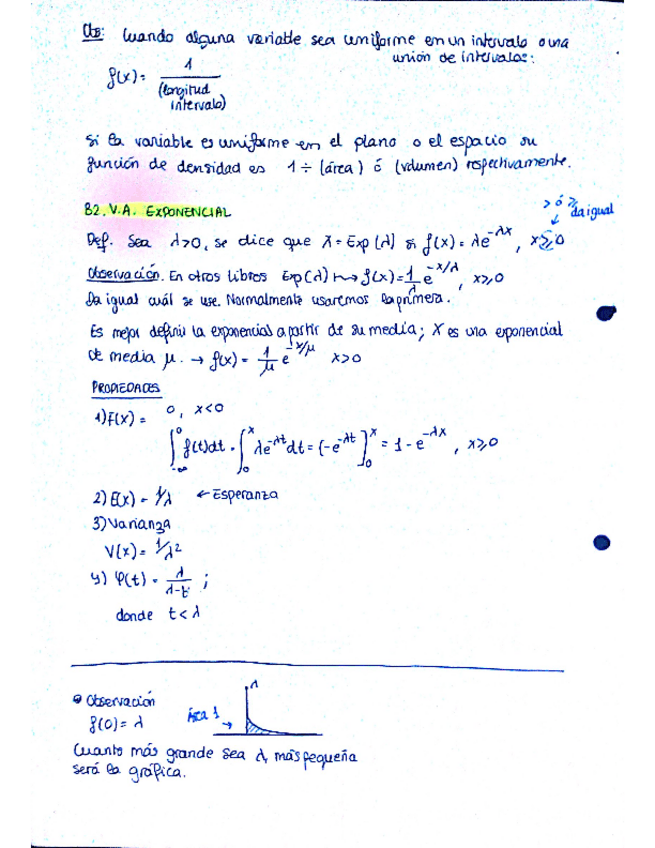 Obs: Cuando alguna variable sea uniforme en un intervalo o una
unión de intervalos:
f(x) = 1 / (longitud intervalo)
Si la variable es uniforme en el plano o el espacio su
función de densidad es 1 ÷ (área) ó (volumen) respectivamente.
B2. V.A. EXPONENCIAL
> ó ≥ da igual
Def. Sea λ>0, se dice que X = Exp(λ) si f(x) = λe^{-λx}, x≥0
Observación. En otros libros Exp(λ) ↦ f(x) = 1/λ e^{-x/λ}, x≥0
Da igual cuál se use. Normalmente usaremos la primera.
Es mejor definir la exponencial a partir de su media; X es una exponencial
de media μ. → f(x) = 1/μ e^{-x/μ} x>0
PROPIEDADES
1) F(x) = 0, x<0
∫_{-∞}^{0} f(t)dt + ∫_{0}^{x} λe^{-λt}dt = (-e^{-λt}]_{0}^{x} = 1 - e^{-λx}, x≥0
2) E(x) = 1/λ ← Esperanza
3) Varianza
V(x) = 1/λ²
4) φ(t) = λ/(λ-t) ;
donde t<λ
Observación
f(0) = λ
λ
Área 1 →
Cuanto más grande sea λ, más pequeña
será la gráfica.